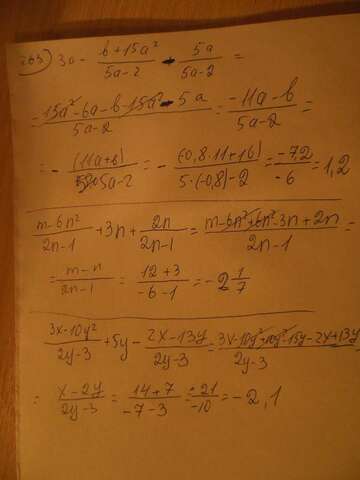 263) 3a - (b+15a²)/(5a-2) - 5a/(5a-2) =
= (15a² - 6a - b - 15a² - 5a)/(5a-2) = (-11a - b)/(5a-2) =
= - (11a+b)/(5a-2) = - (-0,8·11+16)/(5·(-0,8)-2) = (-7,2)/(-6) = 1,2
(m-6n²)/(2n-1) + 3n + 2n/(2n-1) = (m-6n²+6n²-3n+2n)/(2n-1) =
= (m-n)/(2n-1) = (12+3)/(-6-1) = -2 1/7
(3x-10y²)/(2y-3) + 5y - (2x-13y)/(2y-3) = (3x-10y²+10y²-15y-2x+13y)/(2y-3)
= (x-2y)/(2y-3) = (14+7)/(-7-3) = 21/(-10) = -2,1